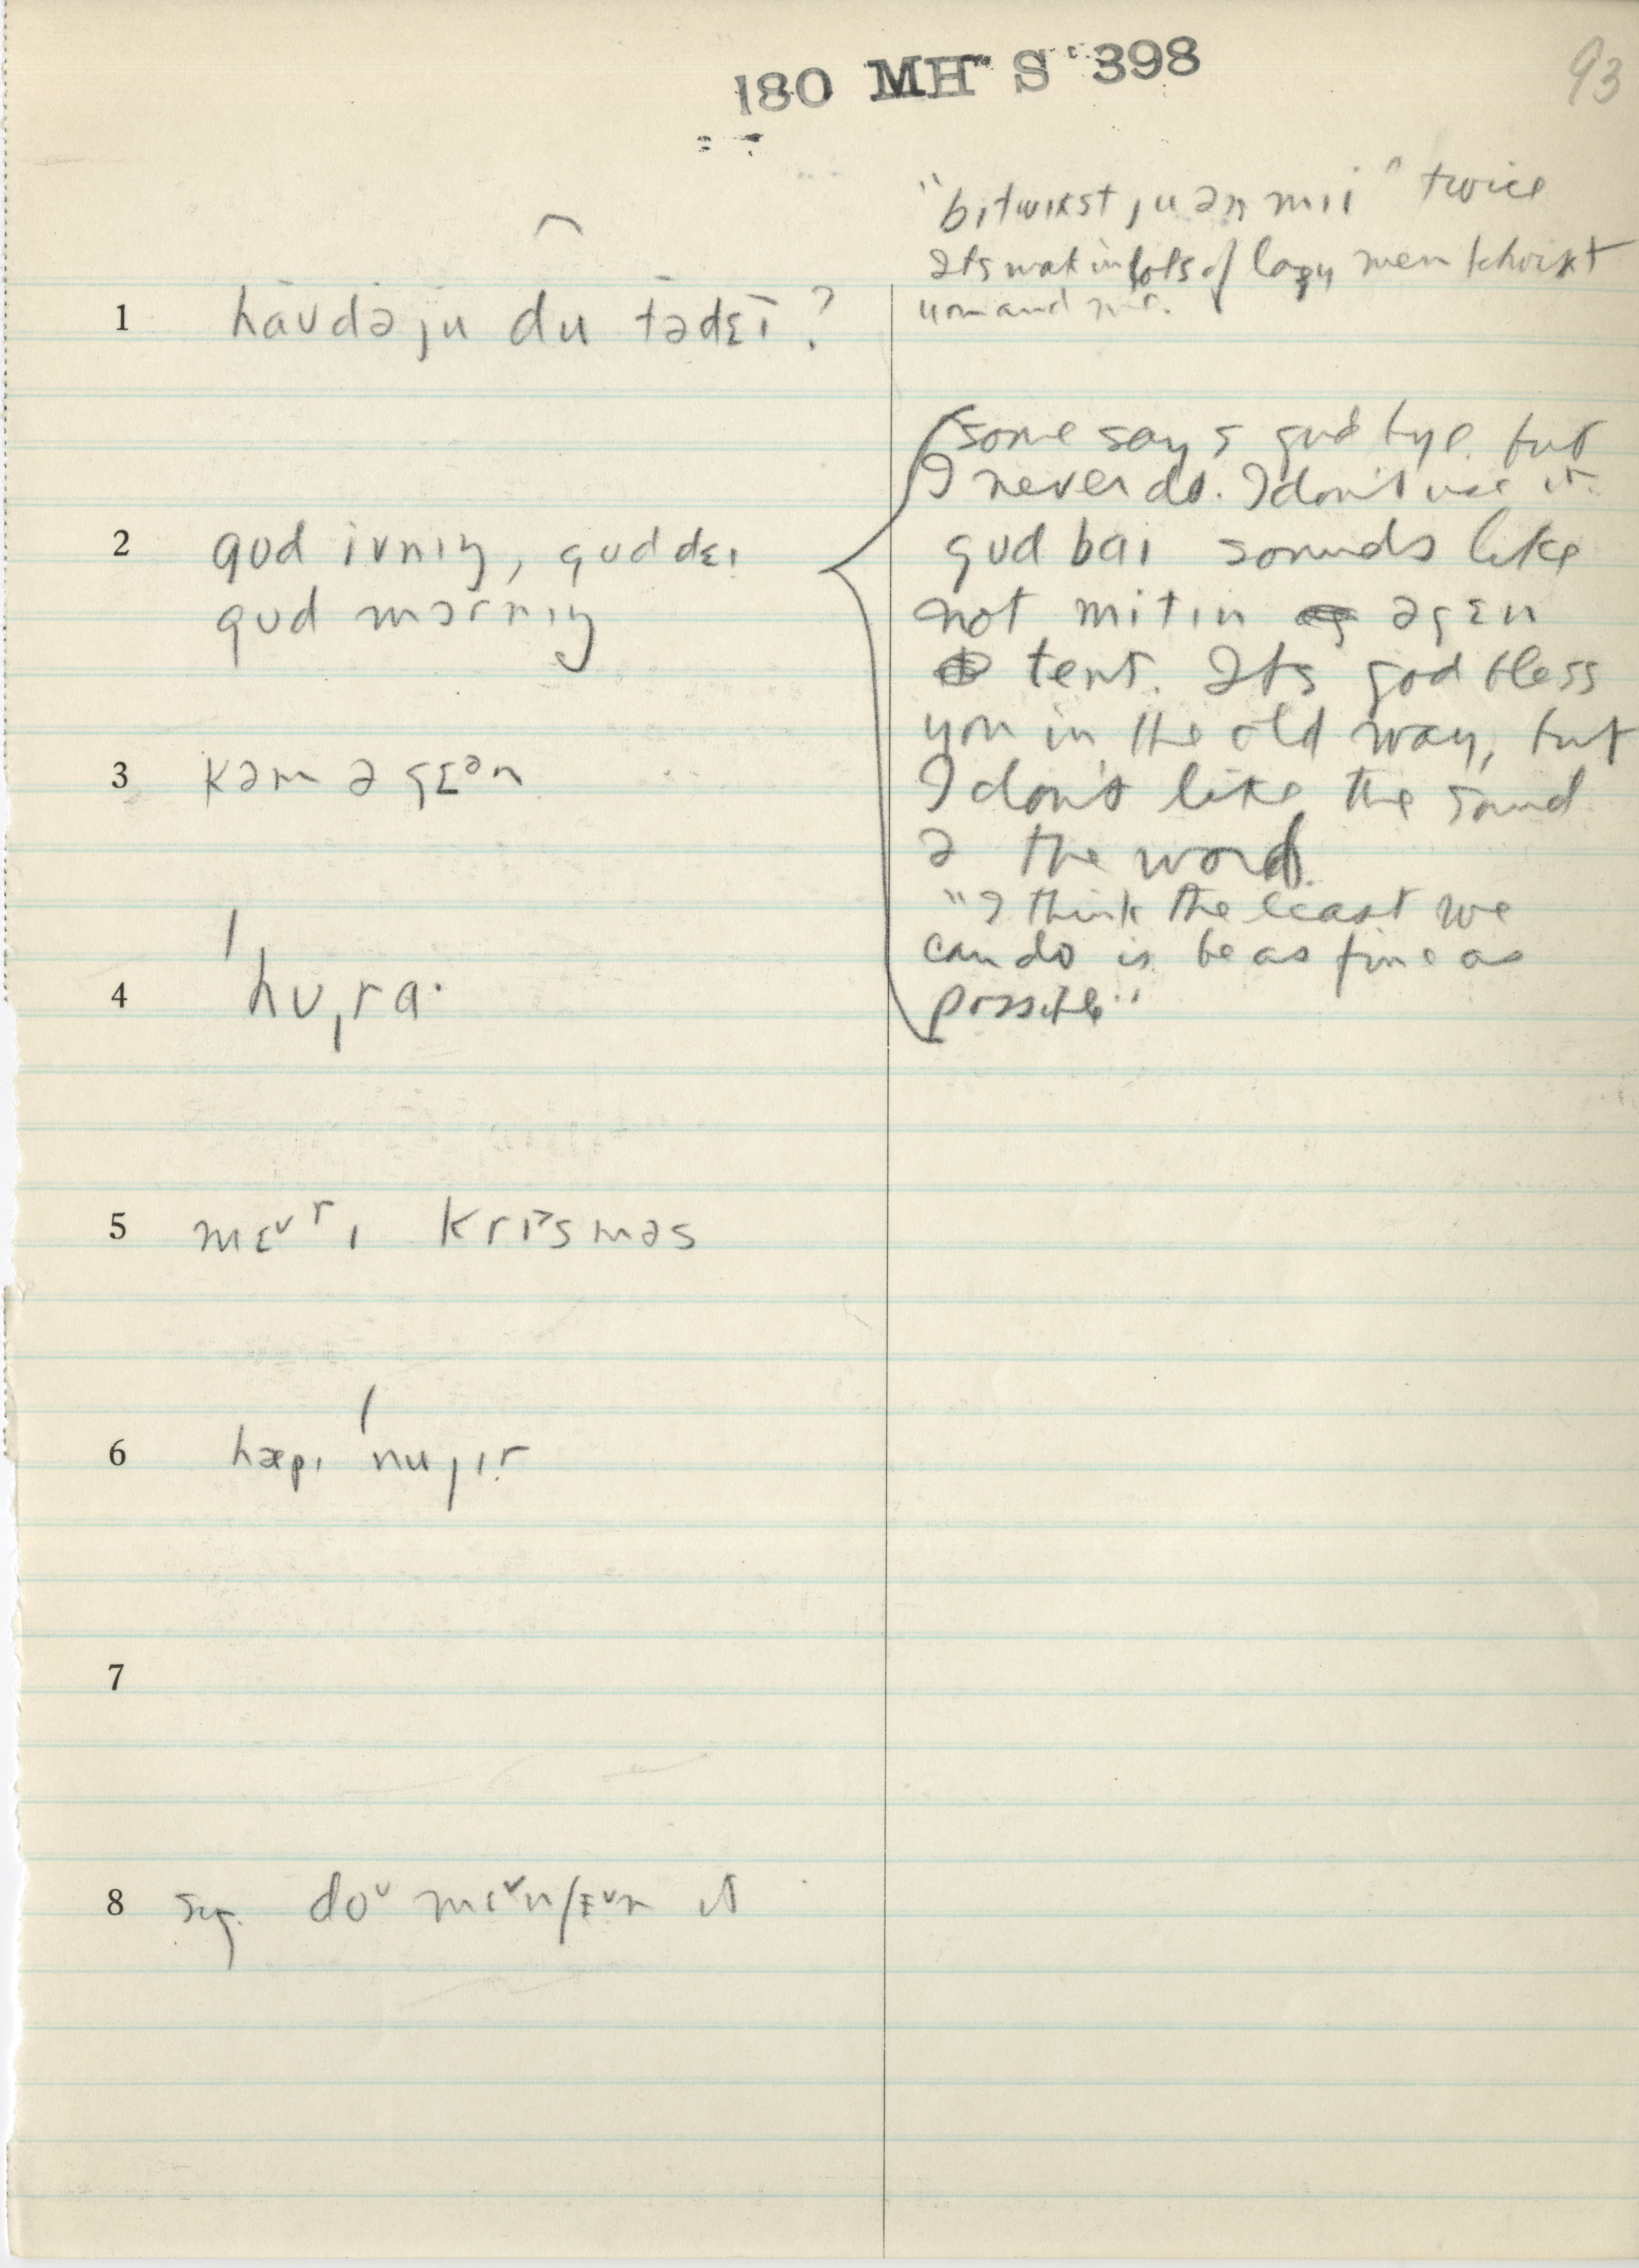 180 MH S 398
93
"bıtwıkst ju ən mii" twice
Its in lots of lazy men
you and me.
1 hävdəju du tədɛī?
some says good bye but
I never do. I don't use it.
gud bai sounds like
not mitin əgɛn
tent. Its god bless
you in the old way, but
I don't like the sound
ə the word.
"I think the least we
can do is be as fine as
possible"
2 gud ivnıŋ, gud dɛı
gud mɔrnıŋ
3 kəm əgɛᵊn
4 ˈhʊˌra·
5 mɛ˅rı krɪ˃sməs
6 hæpı ˈnujır
7
8 sıg. do˅ mɛ˅n/ɛ˅n it